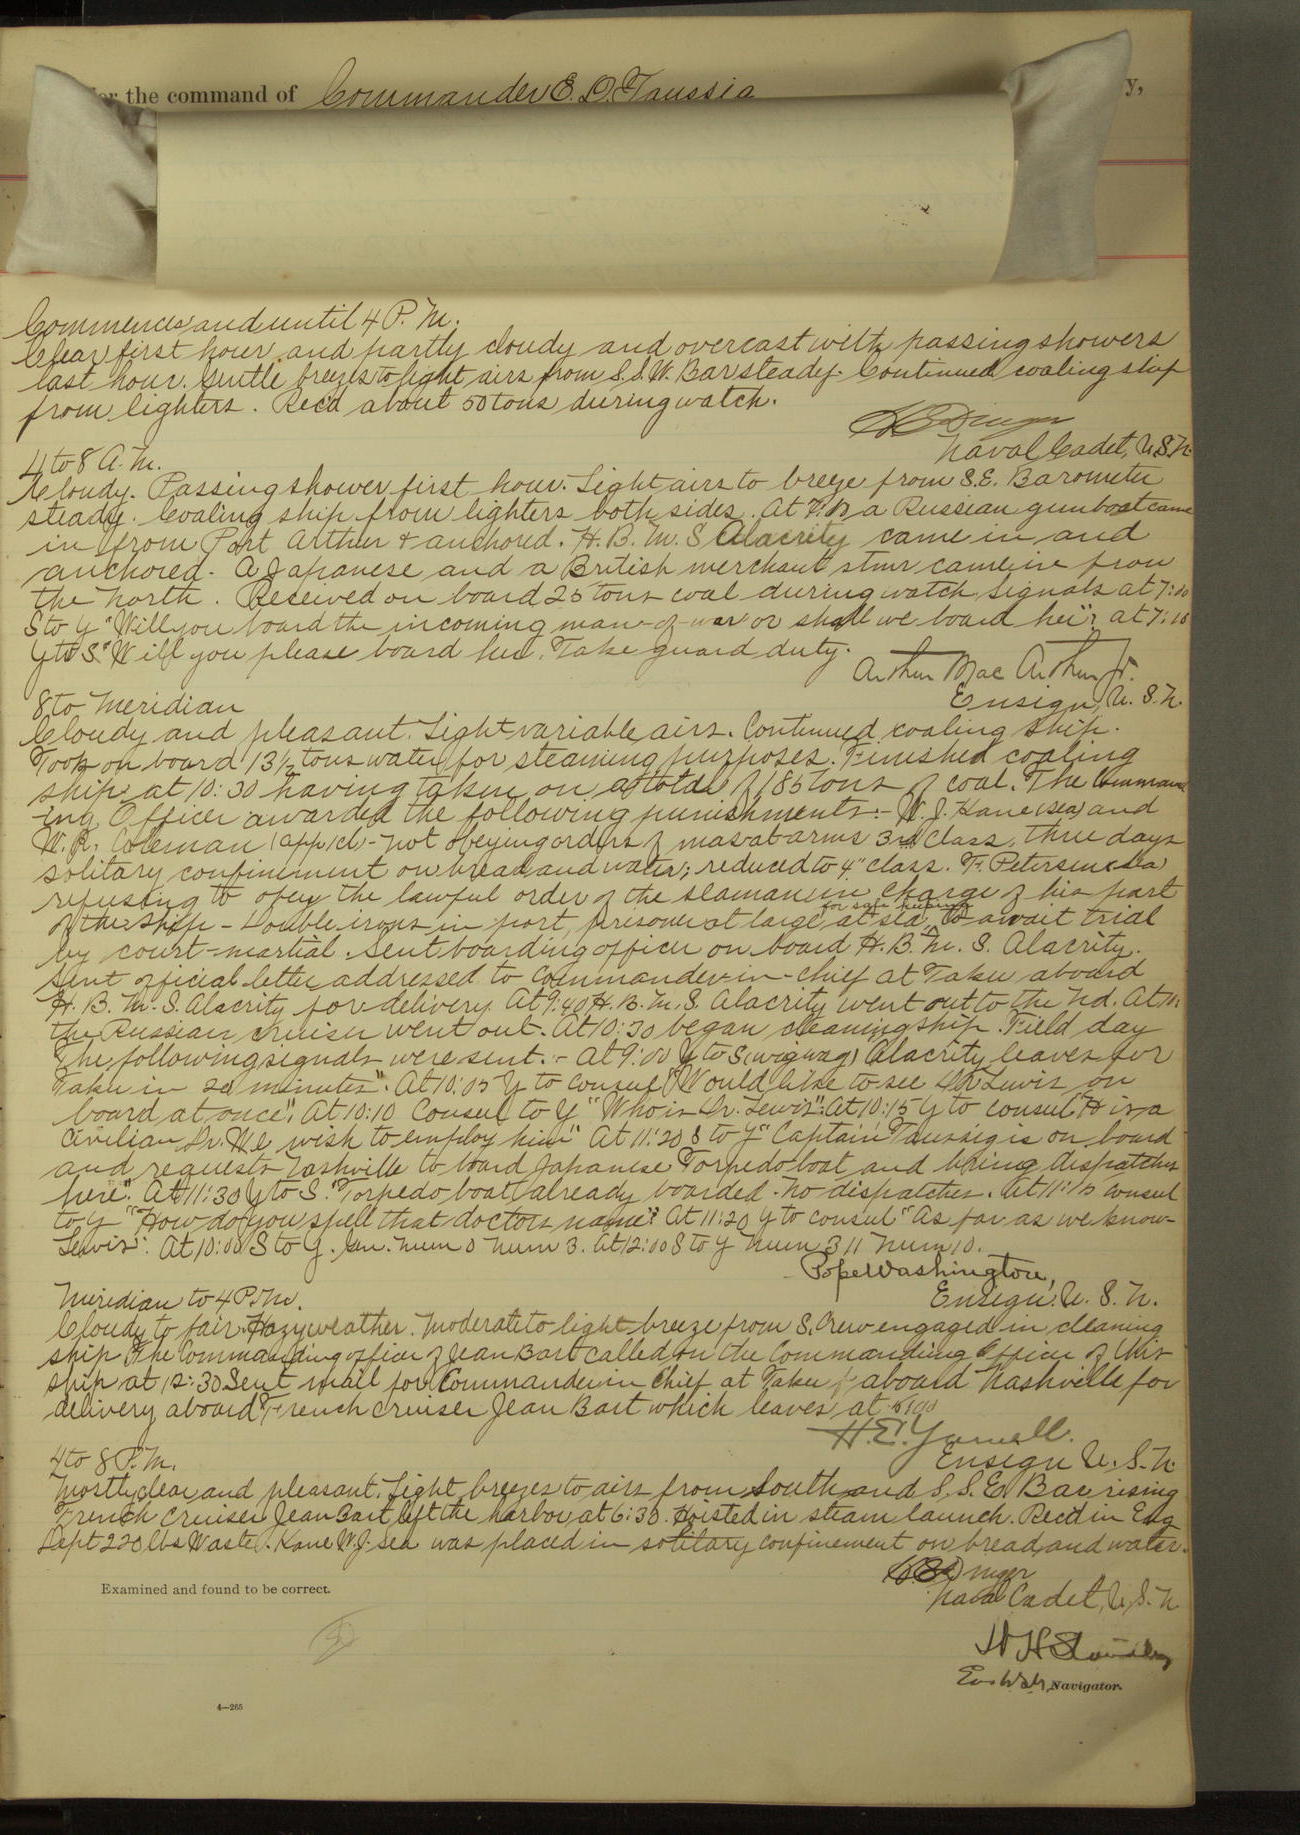 for the command of Commander E. D. Taussig
y,
Commences and until 4 P. M.
Clear first hour and partly cloudy and overcast with passing showers
last hour. Gentle breezes to light airs from S.S.W. Bar steady. Continued coaling ship
from lighters. Rec'd about 50 tons during watch.
Naval Cadet, U.S.N.
4 to 8 A.M.
Cloudy. Passing shower first hour. Light airs to breeze from S.E. Barometer
steady. Coaling ship from lighters both sides. At a Russian gunboat came
in from Port Arthur & anchored. H. B. M. S Alacrity came in and
anchored. A Japanese and a British merchant stmr came in from
the north. Received on board 25 tons coal during watch. Signals at 7:00
S to Y "Will you board the incoming man-of-war or shall we board her"? at 7:10
Y to S "Will you please board her. Take guard duty.
Arthur Mac Arthur Jr.
Ensign, U. S. N.
8 to Meridian
Cloudy and pleasant. Light variable airs. Continued coaling ship.
Took on board 13½ tons water for steaming purposes. Finished coaling
ship at 10:30 having taken on a total of 185 tons of coal. The Command
-ing Officer awarded the following punishments:- W. J. Kane (sea) and
W. R. Coleman (app 1cl) - not obeying orders of mas-at-arms 3rd Class, three days
solitary confinement on bread and water; reduced to 4" class. F. Petersen (sea)
refusing to obey the lawful order of the seaman in charge of his part
of the ship - Double irons in port, prisoner at large at sea, for safe keeping to await trial
by court-martial. Sent boarding officer on board H. B. M. S. Alacrity.
Sent official letter addressed to Commander-in-chief at Taku aboard
H. B. M. S. Alacrity for delivery. At 9:40 H. B. M. S. Alacrity went out to the Nd. At
the Russian cruiser went out. At 10:30 began cleaning ship. Field day
The following signals were sent:- At 9:00 Y to S (wigwag) Alacrity leaves for
Taku in 20 minutes". At 10:05 Y to consul "Would like to see Dr. Lewis on
board at once". At 10:10 Consul to Y "Who is Dr. Lewis". At 10:15 Y to consul "He is a
civilian Dr. We wish to employ him" At 11:20 S to Y "Captain Taussig is on board
and requests Nashville to board Japanese Torpedo boat and bring dispatches
here". At 11:30 Y to S. "Torpedo boat already boarded. No dispatches. At 11:15 consul
to Y "How do you spell that doctors name"? At 11:20 Y to consul "As far as we know-
Lewis". At 10:00 S to Y. Num 0 Num 3. At 12:00 S to Y Num 311 Num 10.
Pope Washington,
Ensign, U. S. N.
Meridian to 4 P.M.
Cloudy to fair. Hazy weather. Moderate to light breeze from S. Crew engaged in cleaning
ship. The Commanding officer of Jean Bart called on the Commanding Officer of this
ship at 12:30. Sent mail for Commander in Chief at Taku aboard Nashville for
delivery aboard French cruiser Jean Bart which leaves at
H.E. Yarnell.
Ensign U. S. N.
4 to 8 P.M.
Mostly clear and pleasant. Light breezes to airs from South and S.S.E. Bar rising
French cruiser Jean Bart left the harbor at 6:30. Hoisted in steam launch. Rec'd in Eng
Dept 220 lbs Waste. Kane W.J. sea was placed in solitary confinement on bread and water.
Naval Cadet, U. S. N.
Examined and found to be correct.
Navigator.
4—265